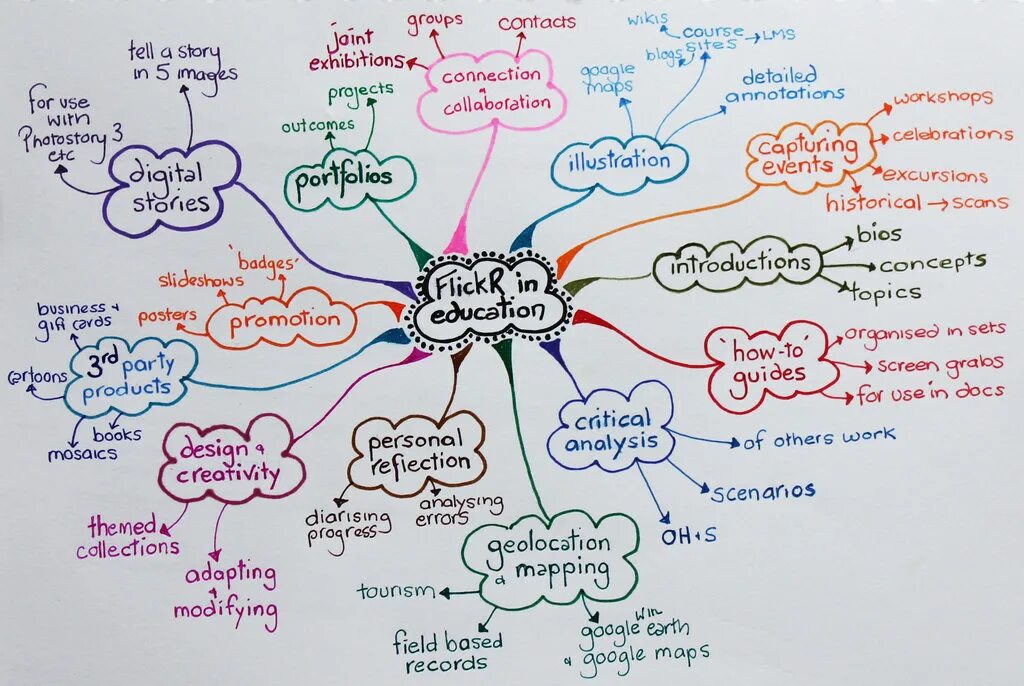 FlickR in
education
connection
&
collaboration
joint
exhibitions
groups
contacts
illustration
google
maps
wikis
blogs
course
sites → LMS
detailed
annotations
capturing
events
workshops
celebrations
excursions
historical → scans
introductions
bios
concepts
topics
'how-to'
guides
organised in sets
screen grabs
for use in docs
critical
analysis
of others work
scenarios
OH+S
geolocation
& mapping
tourism
field based
records
with
google earth
& google maps
personal
reflection
diarising
progress
analysing
errors
design &
creativity
themed
collections
adapting
&
modifying
3rd party
products
business +
gift cards
cartoons
mosaics
books
promotion
posters
slideshows
'badges'
digital
stories
for use
with
Photostory 3
etc
tell a story
in 5 images
portfolios
outcomes
projects